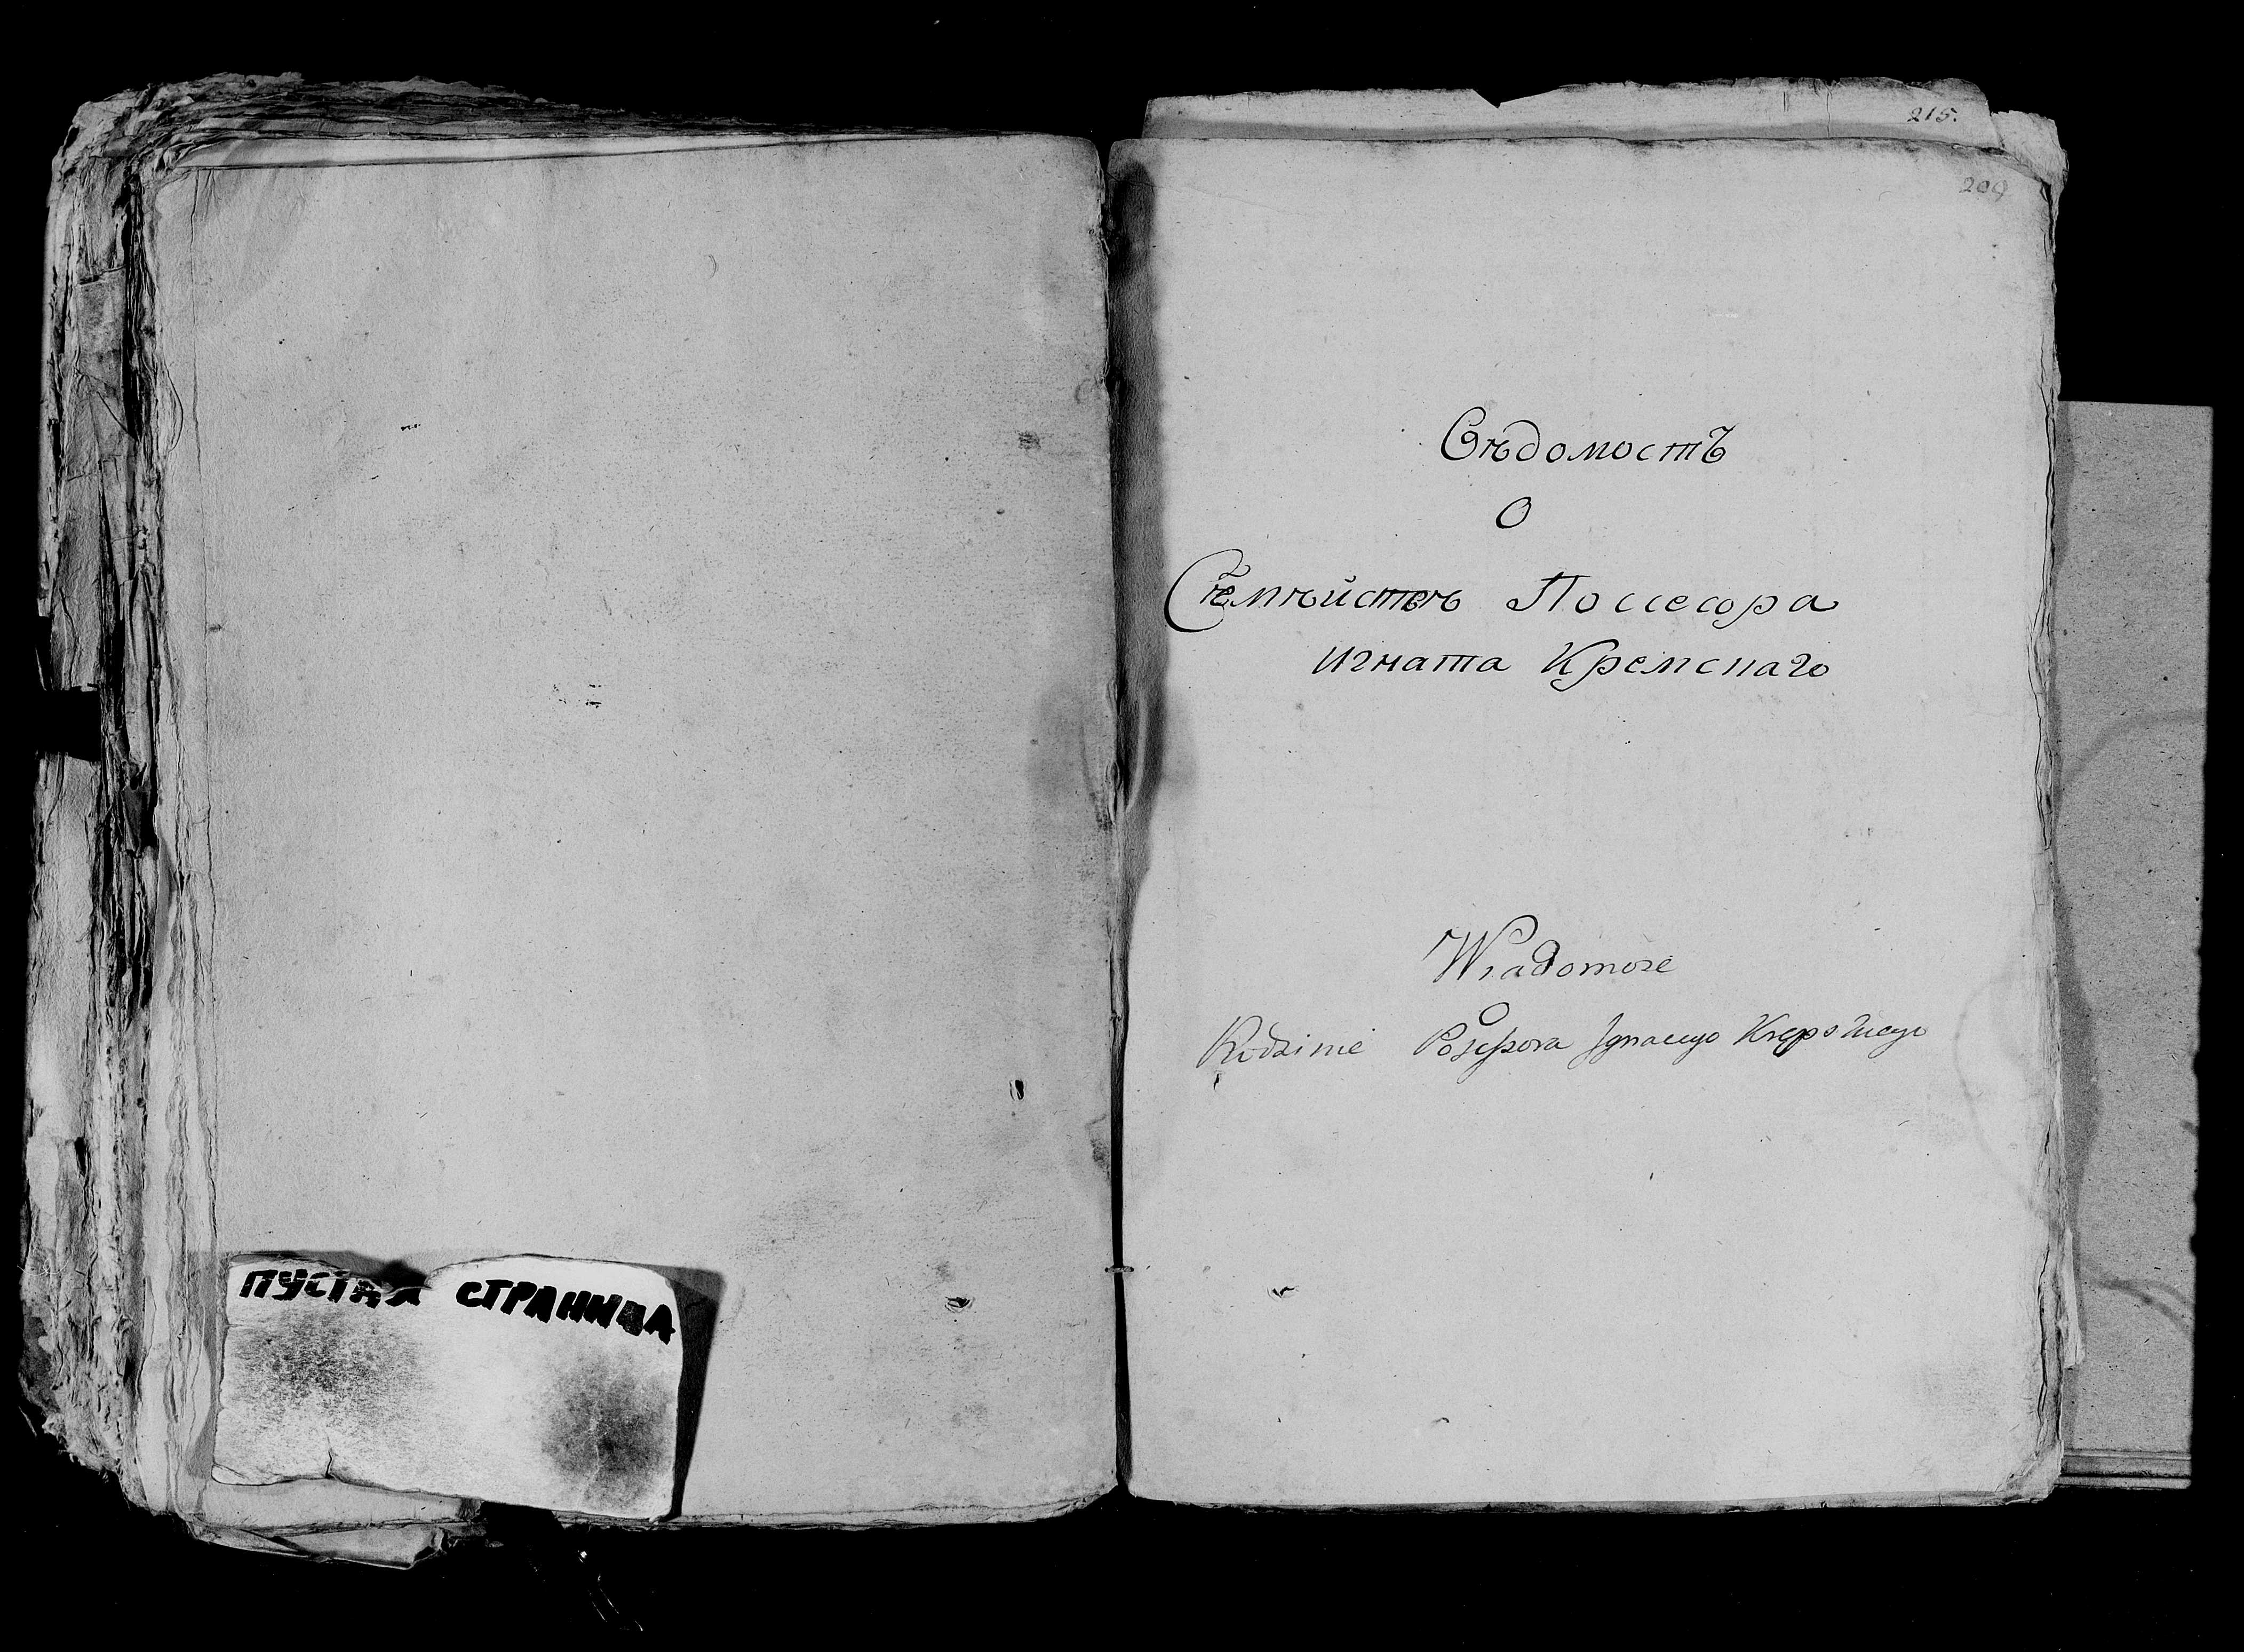 ПУСТАЯ СТРАНИЦА
215.
209
Вѣдомость
О
Семѣйствѣ Поссесора
Игната Кремскаго
Wiadomosc
O
Rodzinie Possessora Ignacego